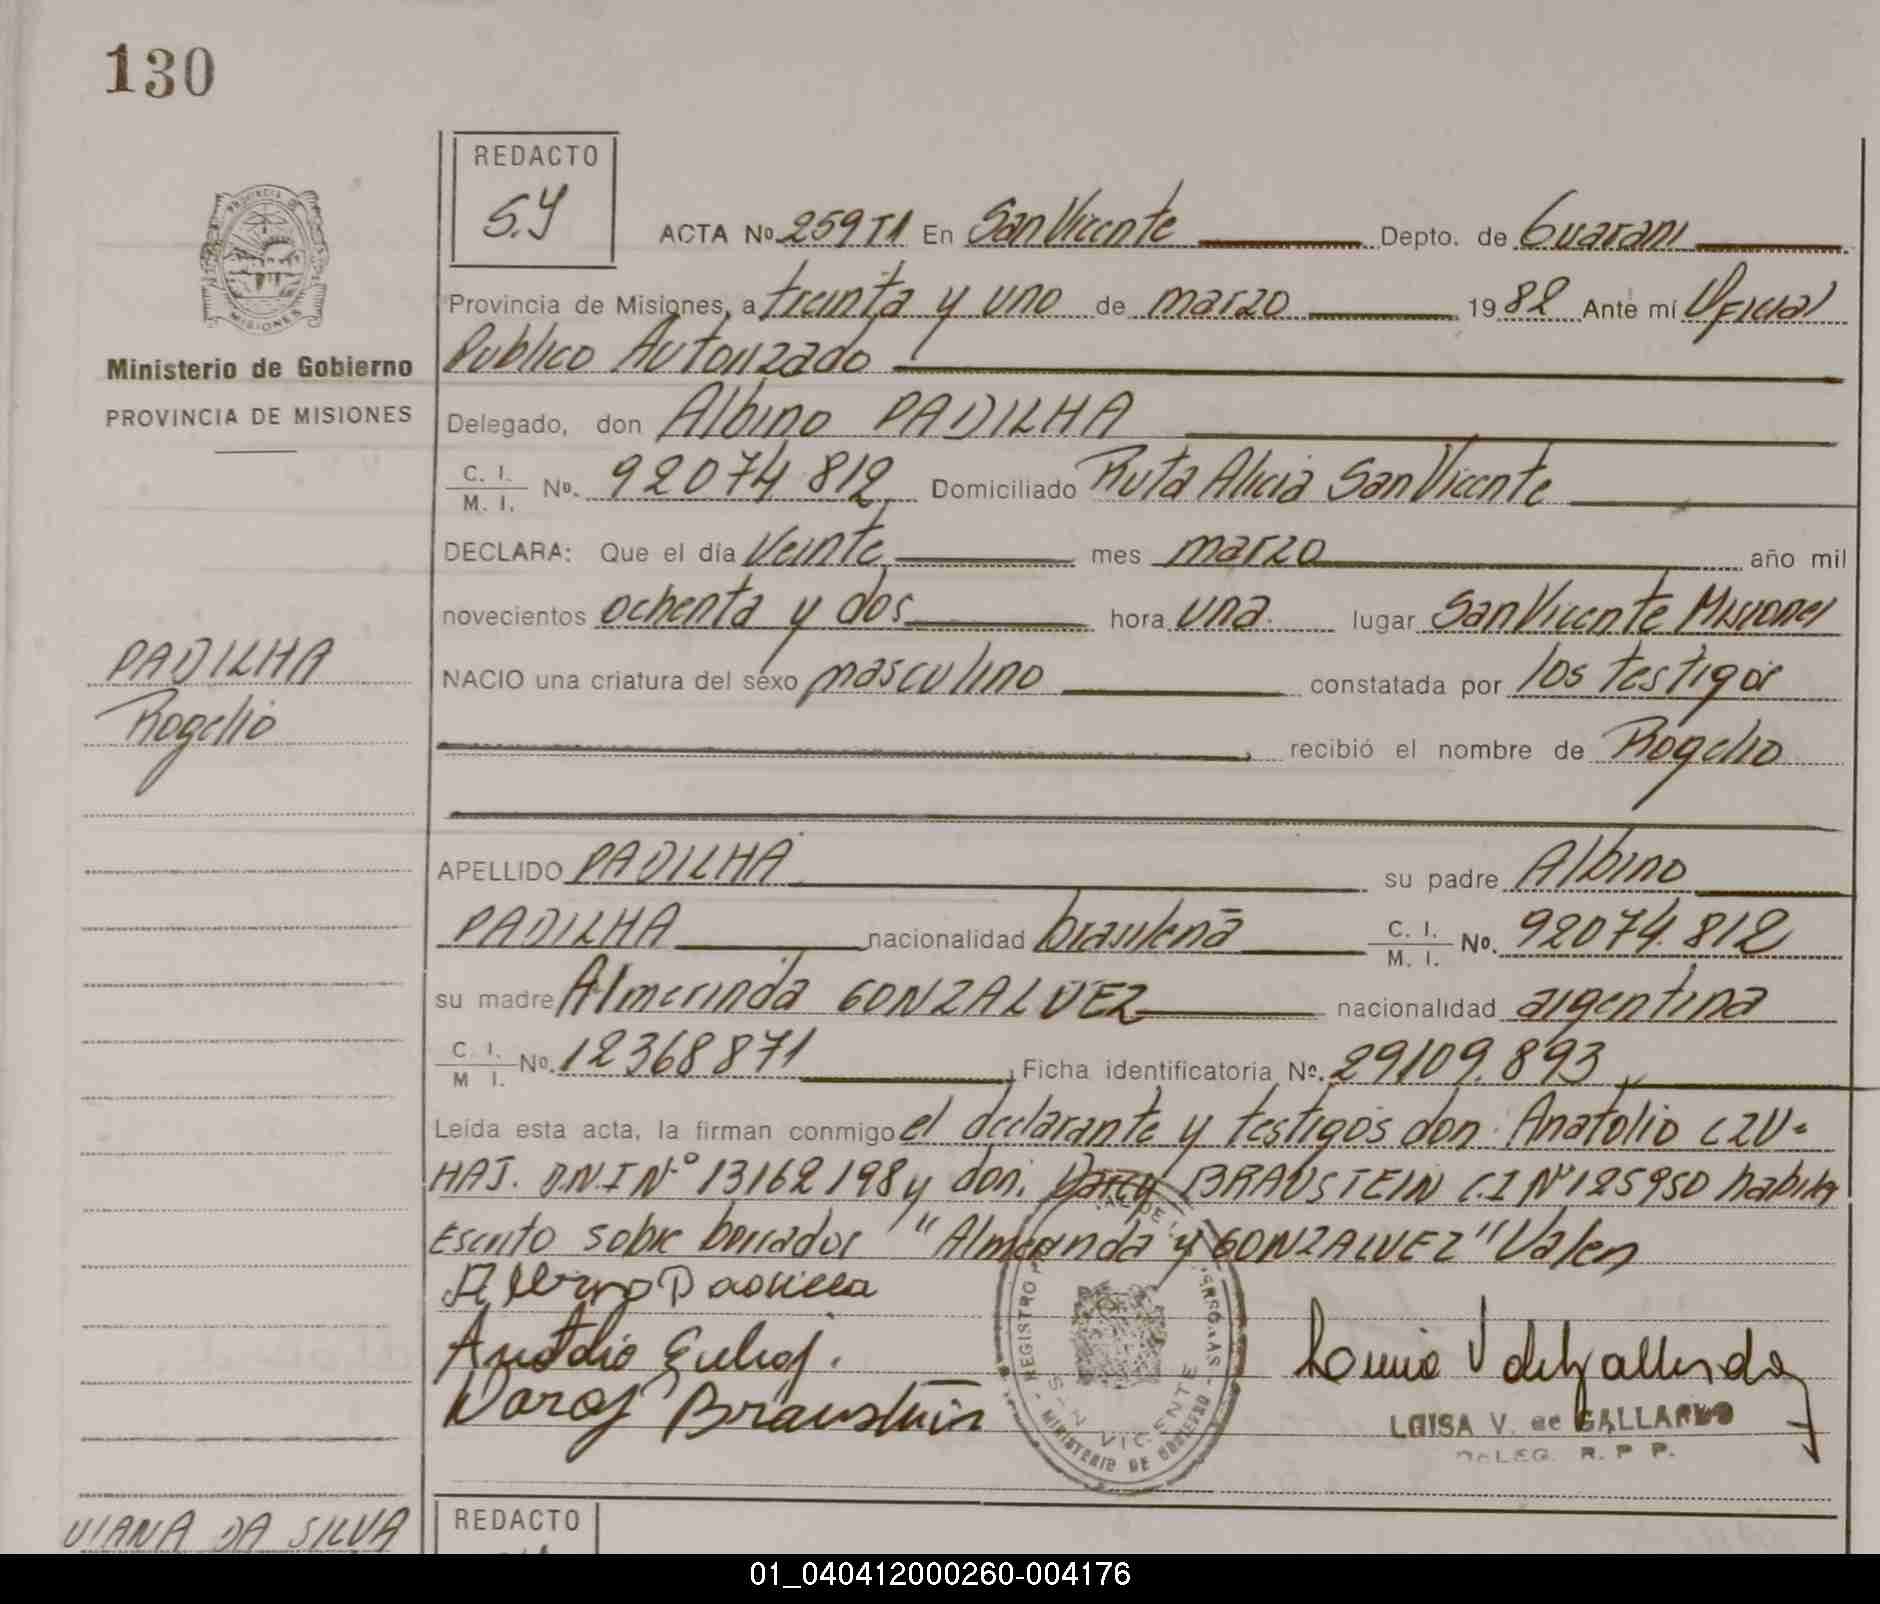 130
REDACTO
S.Y
ACTA No 259 T1 En San Vicente Depto. de Guarani
Provincia de Misiones, a treinta y uno de marzo 1982 Ante mí Oficial
Publico Autorizado
Ministerio de Gobierno
PROVINCIA DE MISIONES
Delegado, don Albino PADILHA
C. I. / M. I. No. 92074.812 Domiciliado Ruta Alicia San Vicente
DECLARA: Que el día Veinte mes marzo año mil
novecientos ochenta y dos hora una lugar San Vicente Misiones
PADILHA
Rogelio
NACIO una criatura del sexo masculino constatada por los testigos
recibió el nombre de Rogelio
APELLIDO PADILHA su padre Albino
PADILHA nacionalidad brasileña C. I. / M. I. No. 92074.812
su madre Almerinda GONZALVEZ nacionalidad argentina
C. I. / M I. No. 12368871, Ficha identificatoria No. 29109.893
Leída esta acta, la firman conmigo el declarante y testigos don. Anatolio CZU-
HAJ. D.N.I Nº 13162198 y don. Darcy BRAUSTEIN C.I Nº 125950 habiles
Escrito sobre borrador "Almerinda y GONZALVEZ" Valen
MISIONES
REGISTRO
SAN VICENTE
MINISTERIO DE GOBIERNO
LUISA V. de GALLARDO
DELEG. R. P. P.
VIANA DA SILVA
REDACTO
01_040412000260-004176